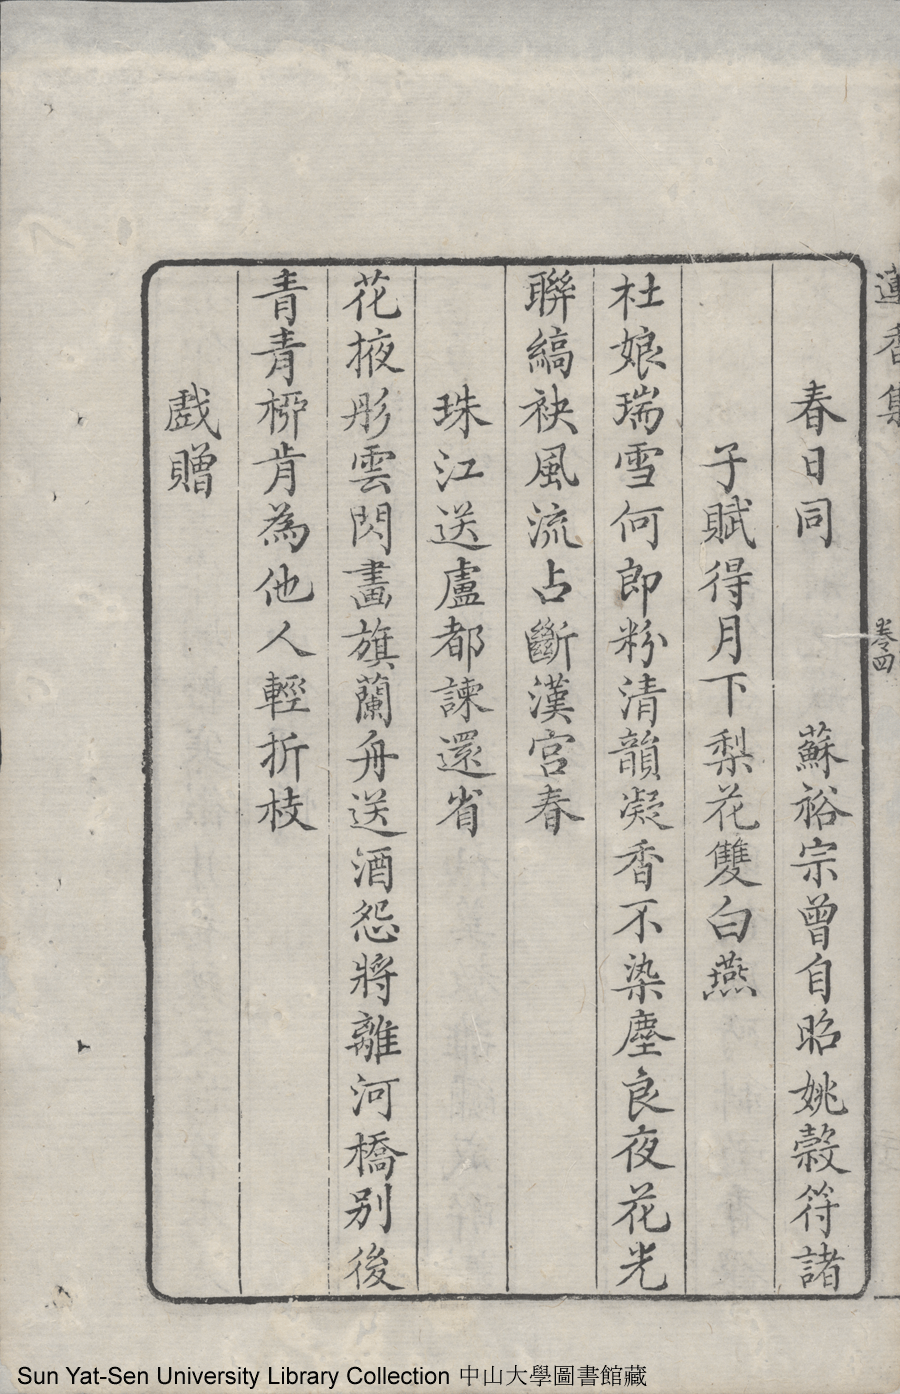 蓮香集
卷四
春日同　　　蘇裕宗曾自昭姚穀符諸
子賦得月下梨花雙白燕
杜娘瑞雪何郎粉清韻凝香不染塵良夜花光
聯縞袂風流占斷漢宮春
珠江送盧都諫還省
花掖彤雲閃畫旗蘭舟送酒怨將離河橋別後
青青桺肯為他人輕折枝
戲贈
Sun Yat-Sen University Library Collection 中山大學圖書館藏